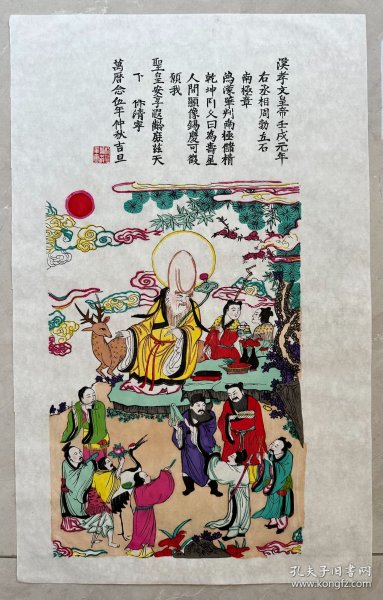 漢孝文皇帝壬戌元年
右丞相周勃立石
南極章
鴻濛肇判南極儲精
乾坤同久曰為壽星
人間顯像錫慶可徵
願我
聖皇安享遐齡庇茲天
下 作清寧
萬曆念伍年仲秋吉旦
孔夫子旧书网
www.kongfz.com